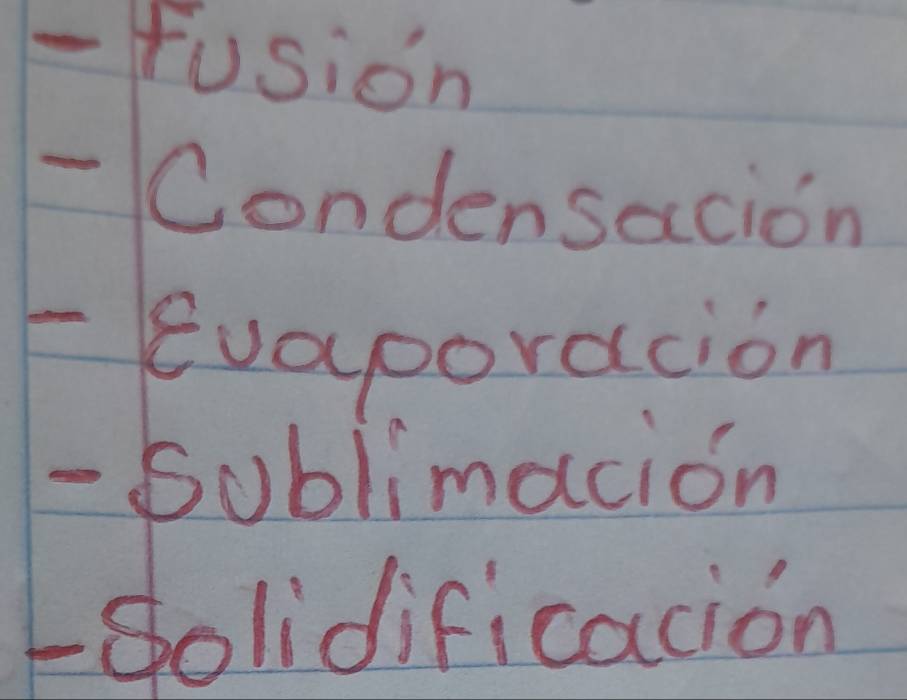 - Fusión
- Condensación
- Evaporación
- Sublimación
- Solidificación